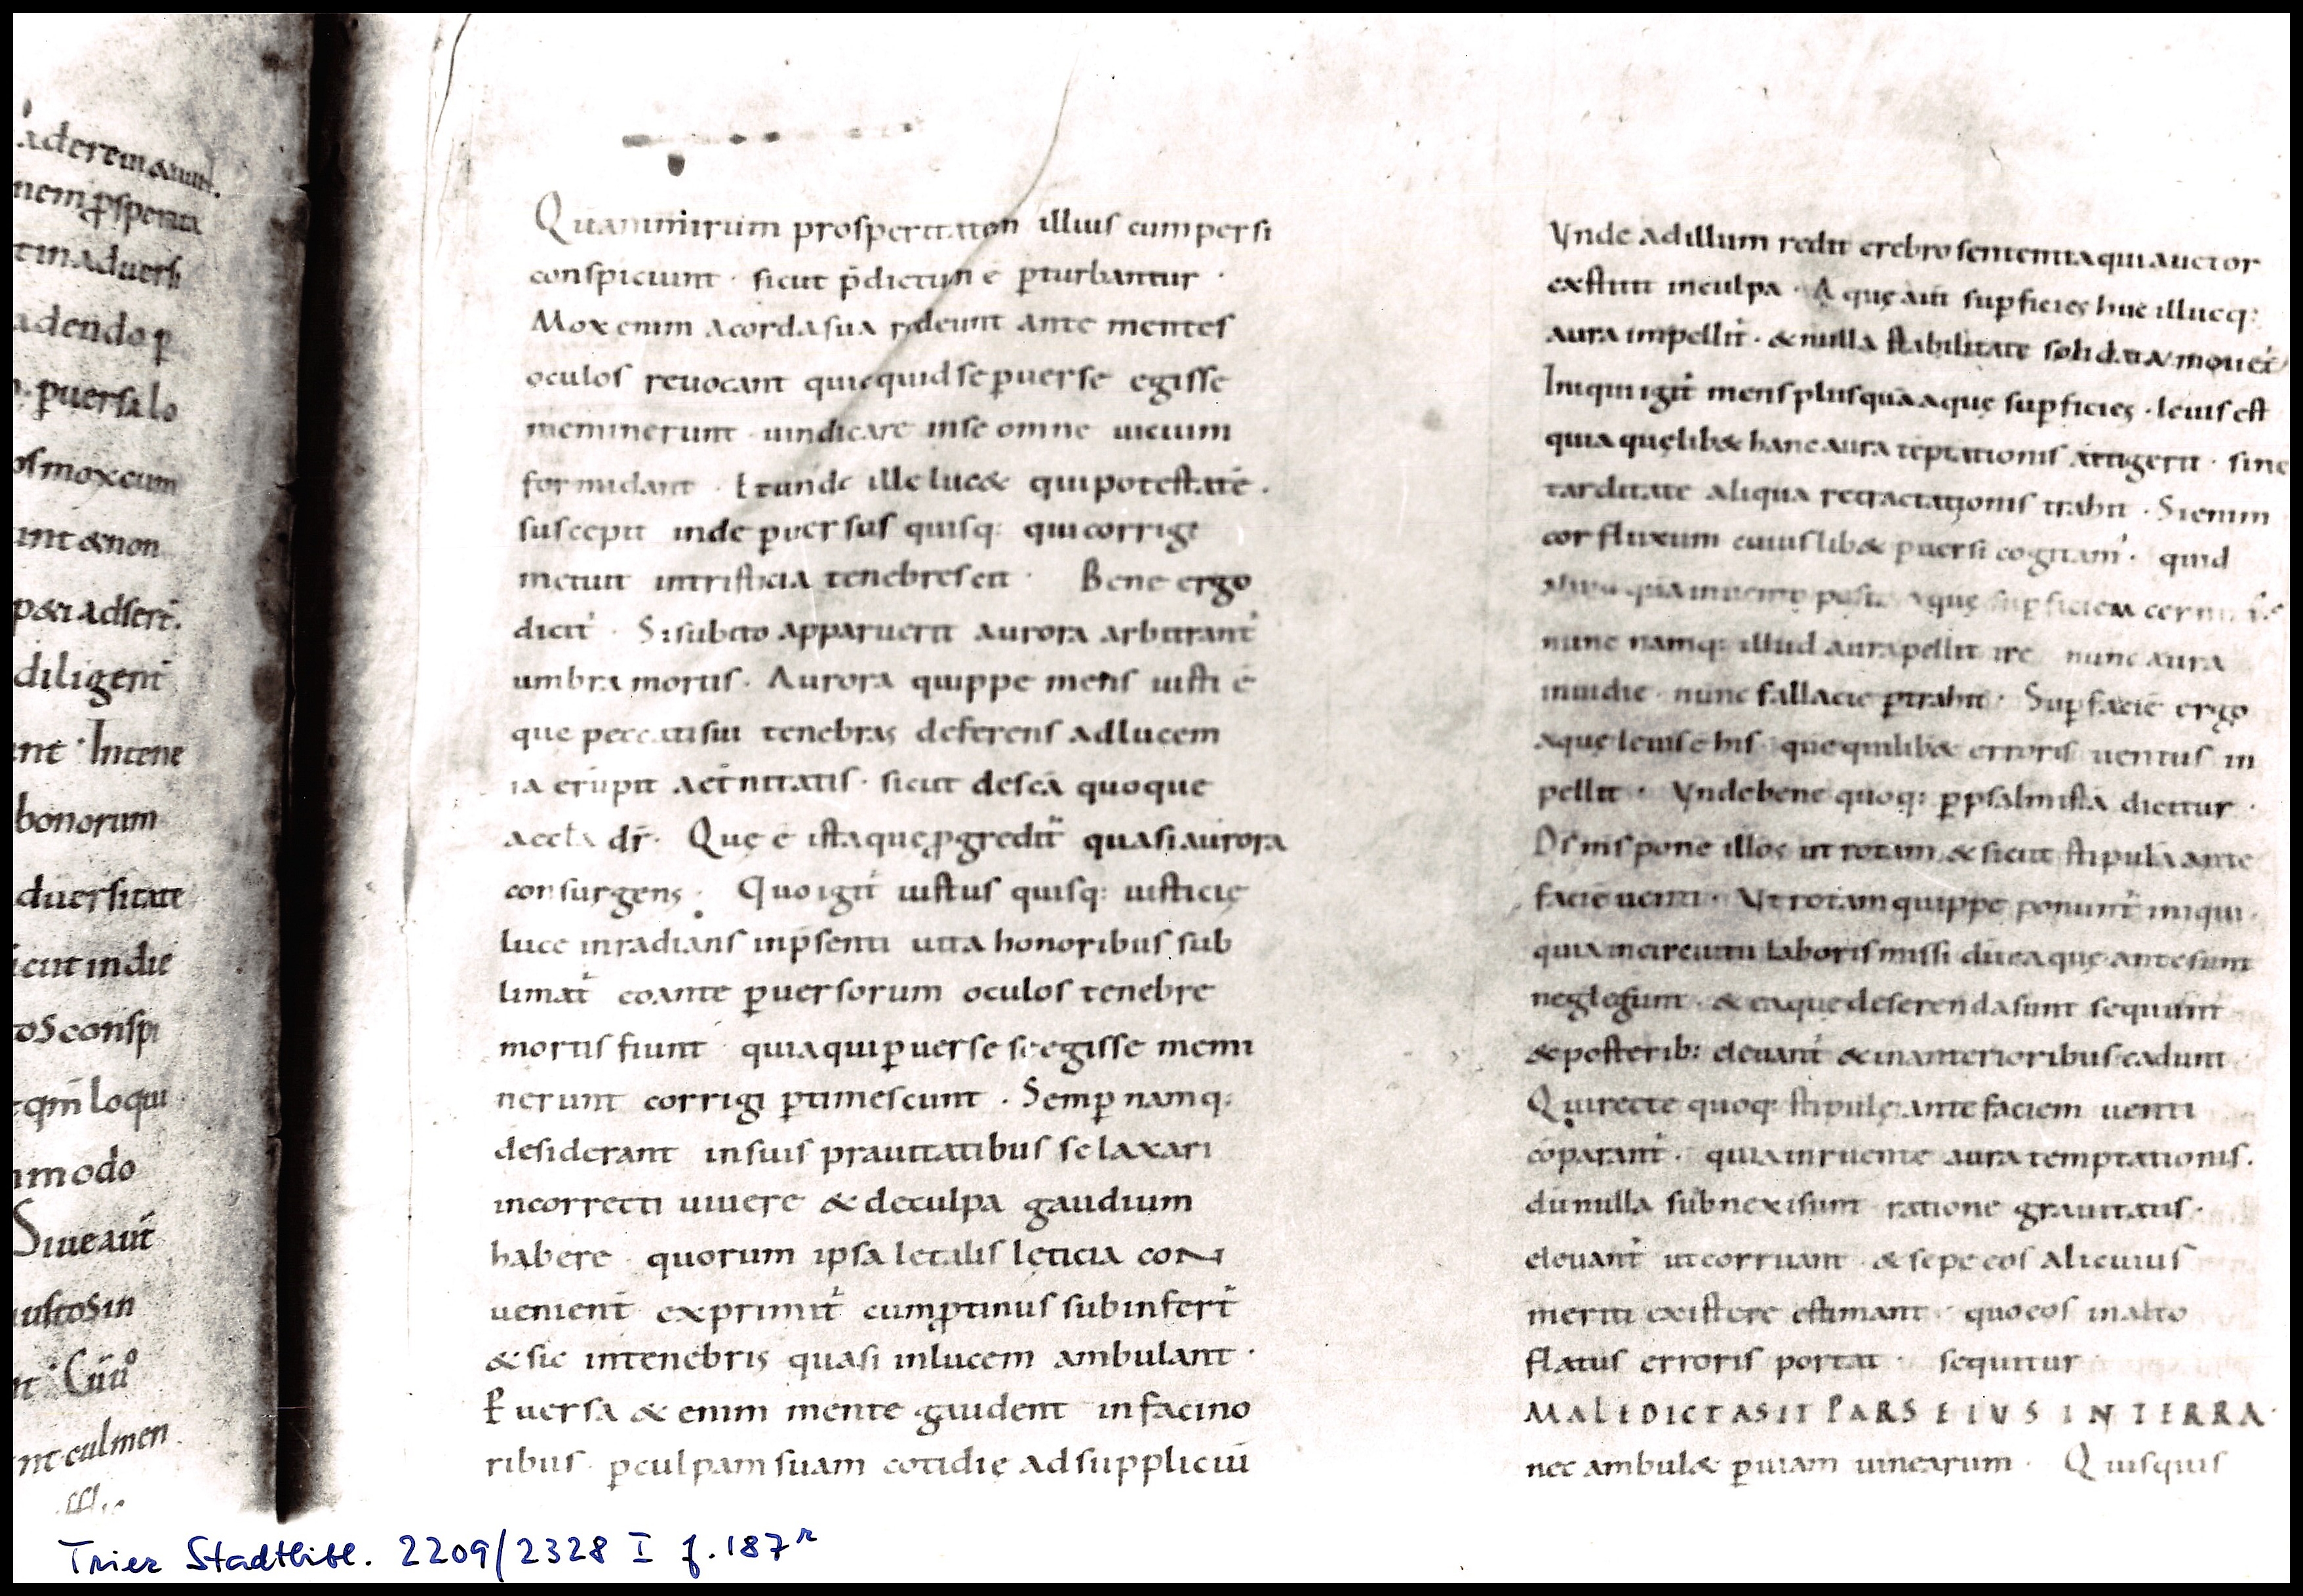 aderein&aut.
nem ꝓsperita
t in aduersi
adendo p̱
p̱uersa lo
os mox cum
unt & non
p&ri adsert̄.
diligent̄
nt · In tene
bonorum
duersitate
icut in die
tos conspi
qm̄ loqui
modo
Siue aut̄
iustos in
nt culmen
Quam mirum prosperitatem illius cum persi
conspiciunt · sicut p̄dictum ē p̱turbantur ·
Mox enim a corda sua redeunt ante mentes
oculos reuocant quicquid se p̱uerse egisse
meminerunt · uindicare in se omne uicium
formidant · Et unde ille luc& qui potestatē ·
suscepit inde p̱uersus quisq: qui corrigi
metuit in tristicia tenebrescit · Bene ergo
dicit̄ · Si subito apparuerit aurora arbitrant̄
umbra mortis · Aurora quippe mens iusti ē
que peccati sui tenebras deferens ad lucem
ia erupit aet̄nitatis · sicut de scā quoque
aeccla dr̄ · Quę ē ista que ꝓgredit̄ quasi aurora
consurgens · Quo igit̄ iustus quisq: iusticię
luce inradians in p̄senti uita honoribus sub
limat̄ eo ante p̱uersorum oculos tenebre
mortis fiunt quia qui p̱uerse se egisse memi
nerunt corrigi p̱timescunt · Semp̱ namq;
desiderant in suis prauitatibus se laxari
incorrecti uiuere & de culpa gaudium
habere · quorum ipsa letalis leticia coN
uenient̄ exprimit̄ cum ꝓtinus subinfert̄
& sic in tenebris quasi in lucem ambulant ·
P̱uersa & enim mente gaudent in facino
ribus · p̱ culpam suam cotidię ad suppliciū
Vnde ad illum redit crebro sententia qui auctor
exstitit in culpa · Aquę aut̄ sup̱ficies huc illucq:
aura impellit̄ · & nulla stabilitate solidata mouet̄
Iniqui igit̄ mens plus quā aquę sup̱ficies · leuis est
quia quęlib& hanc aura tēptationis attigerit · sine
tarditate aliqua retractationis trahit · Si enim
cor fluxum cuiuslib& p̱uersi cogitam̄ · quid
aliud quā in uento positā aquę sup̱ficiem cernim̄
nunc namq: illud aura pellit ire nunc aura
inuidie · nunc fallacie p̱trahit · Sup̱ faciē ergo
aque leuis ē his que quilib& erroris uentus in
pellit · Vnde bene quoq: p̱ psalmistā dicitur ·
Ds̄ ms̄ pone illos ut rotam & sicut stipulā ante
faciē uenti · Vt rotam quippe ponunt̄ iniqui ·
quia in circuitu laboris missi dū ea que ante sunt
neglegunt · & ea que deserenda sunt sequunt̄
& posterib: eleuant̄ & in anterioribus cadunt
Qui recte quoq: stipulę ante faciem uenti
cōparant̄ · quia inruente aura temptationis ·
dū nulla subnexi sunt ratione grauitatis ·
eleuant̄ ut corruant · & sepe eos alicuius
meriti existere estimant · quo eos in alto
flatus erroris portat · sequitur
MALEDICTA SIT PARS EIUS IN TERRA ·
nec ambul& p̱ uiam uinearum · Quisquis
Trier Stadtbibl. 2209/2328 I f. 187ʳ